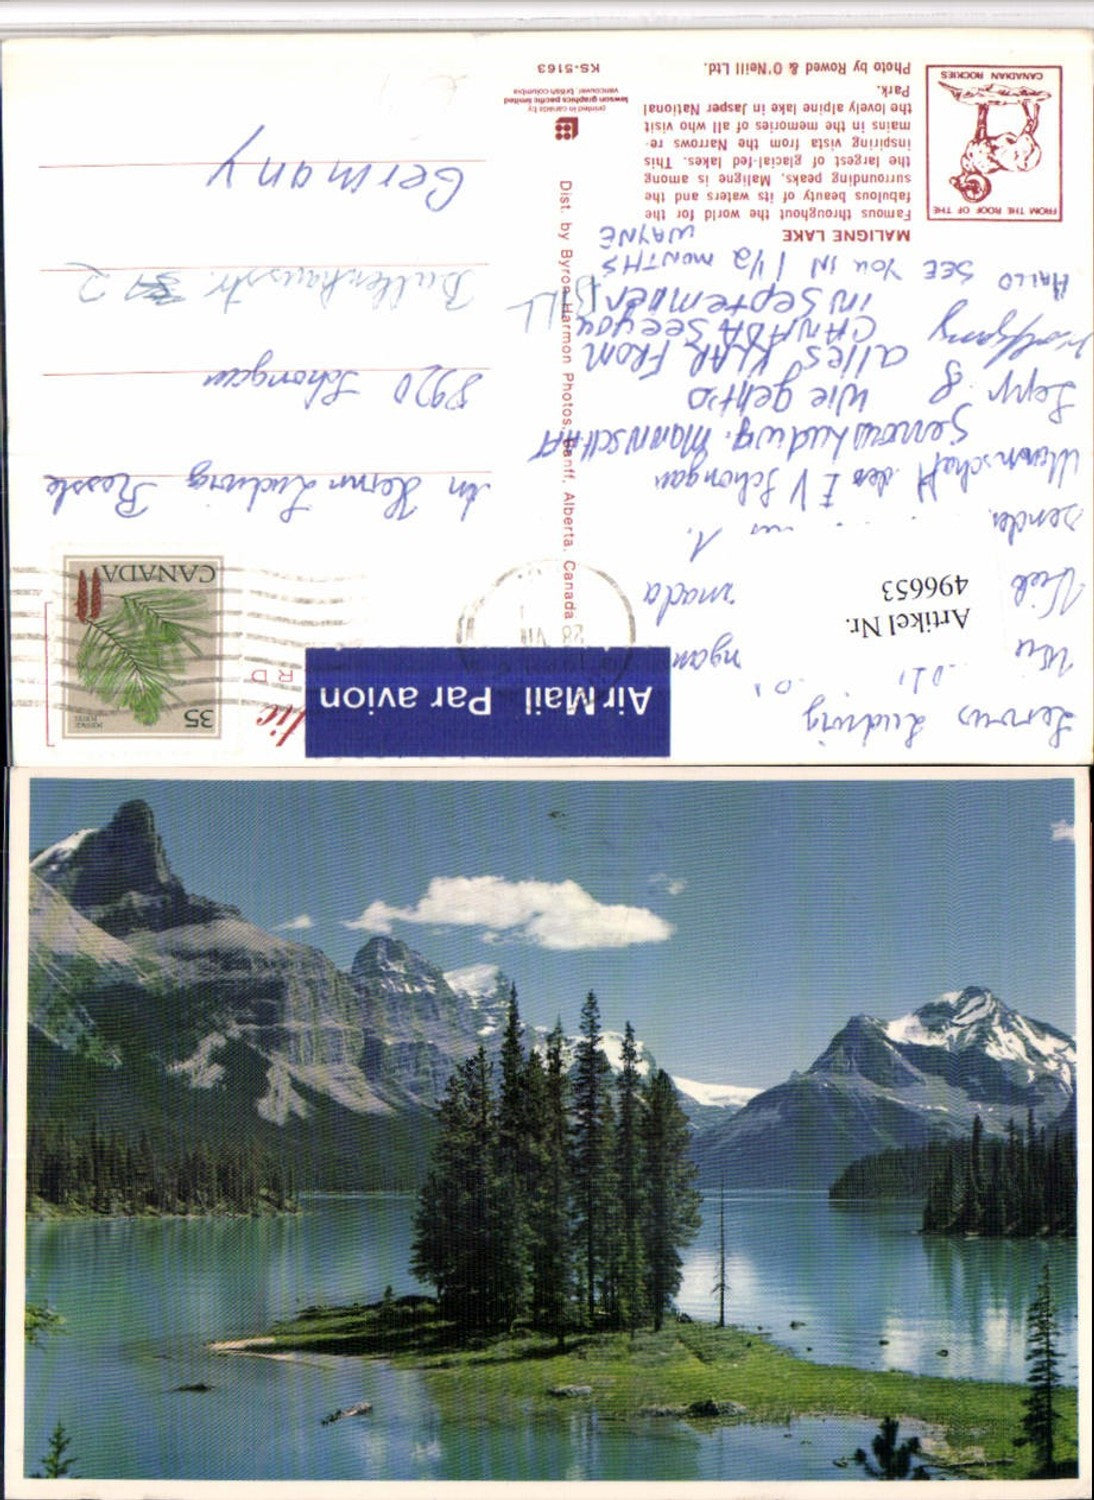 MALIGNE LAKE
Famous throughout the world for the
fabulous beauty of its waters and the
surrounding peaks, Maligne is among
the largest of glacial-fed lakes. This
inspiring vista from the Narrows re-
mains in the memories of all who visit
the lovely alpine lake in Jasper National
Park.
Photo by Rowed & O'Neill Ltd.
FROM THE ROOF OF THE
CANADIAN ROCKIES
KS-5163
printed in canada by
lawson graphics pacific limited
vancouver, british columbia
Dist. by Byron Harmon Photos, Banff, Alberta, Canada
Air Mail Par avion
35
CANADA
28 VII
Artikel Nr.
496653
Servus Ludwig
Wie
Viele
senden
der EV Schongau
Servus Ludwig. MANNSCHAFT
Sepp & Wie geht's
Wolfgang alles KLAR FROM
CANADA See you
in September
BILL
HALLO SEE YOU IN 1 1/2 MONTHS
WAYNE
An Herrn Ludwig
8920 Schongau
2
Germany